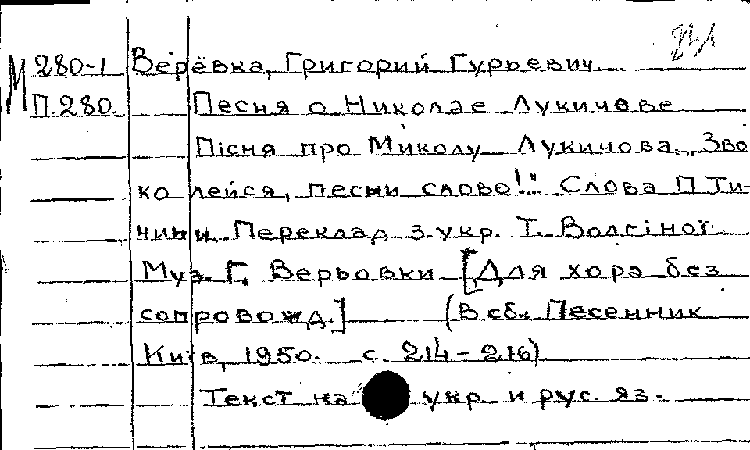 М 280-1 Верёвка, Григорий Гурьевич
П.280 Песня о Николае Лукичёве
Пісня про Миколу Лукичова. „Зво
ко лейся, песни слово!" Слова П Ти-
чини. Переклад з укр. Т. Волгіної
Муз. Г. Верьовки [Для хора без
сопровожд.] (В сб. Песенник
Київ, 1950. с. 214-216)
Текст на укр. и рус. яз.